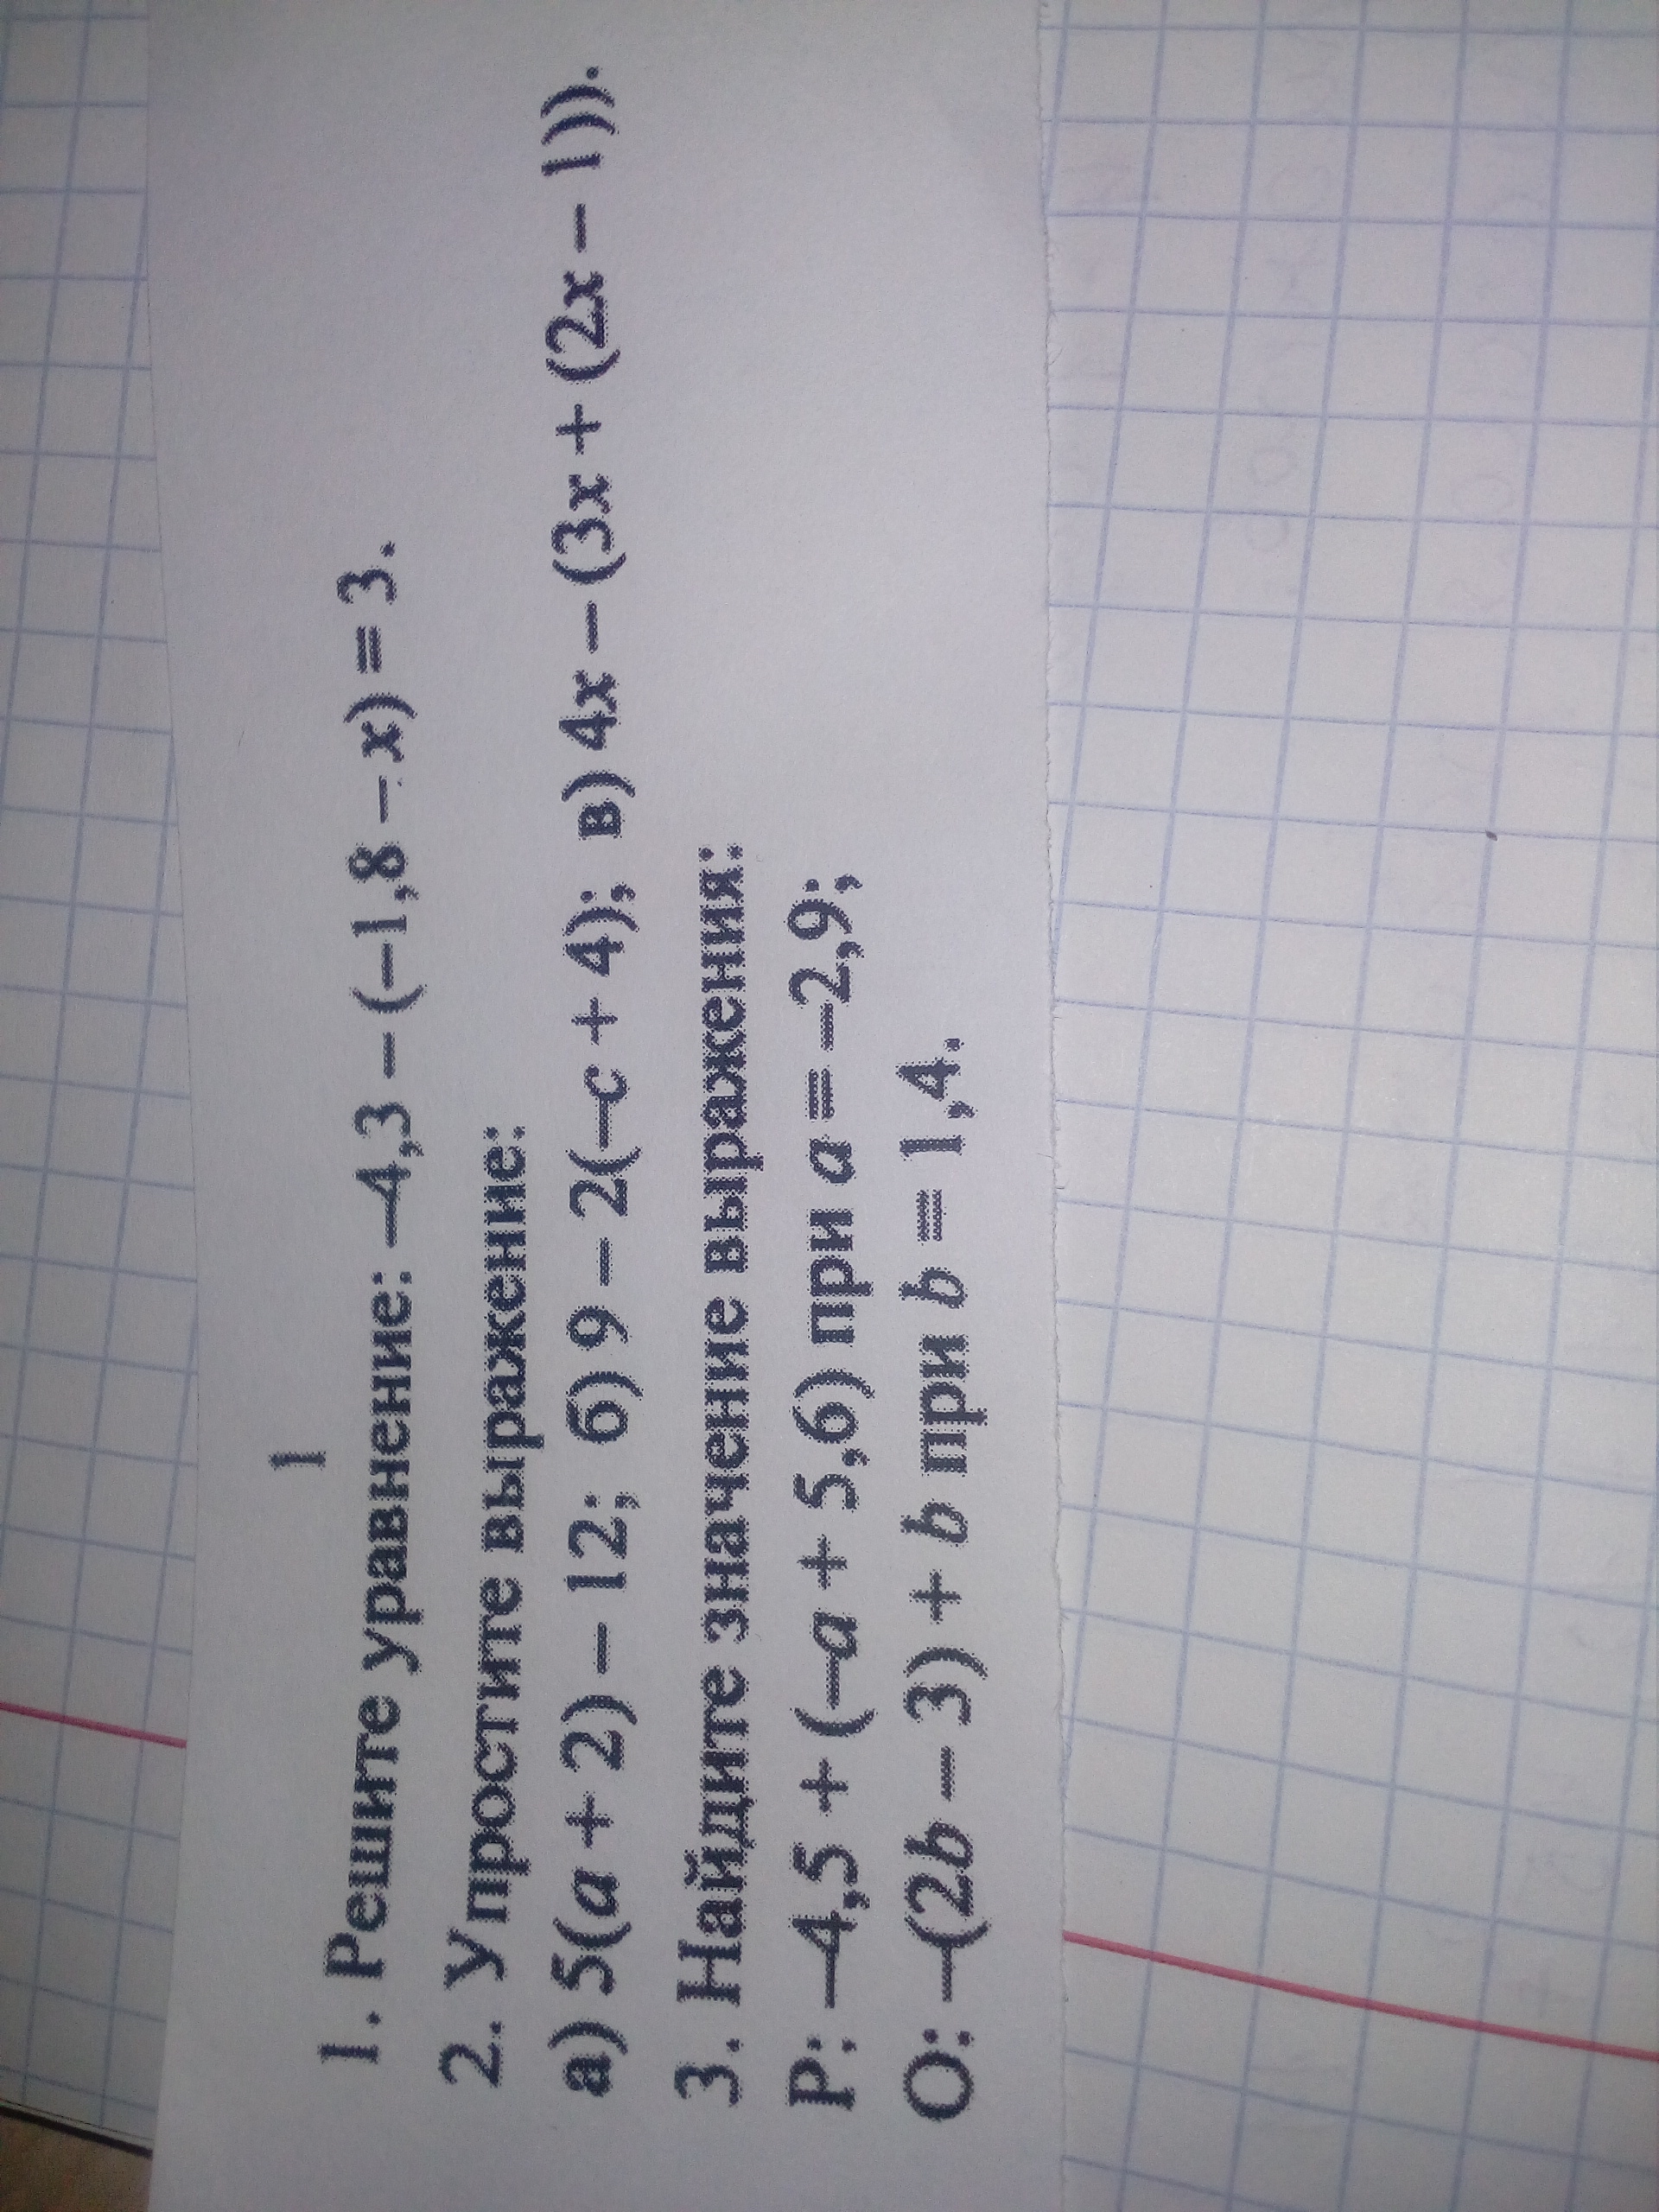 1
1. Решите уравнение: –4,3 – (–1,8 – x) = 3.
2. Упростите выражение:
а) 5(a + 2) – 12; б) 9 – 2(–c + 4); в) 4x – (3x + (2x – 1)).
3. Найдите значение выражения:
Р: –4,5 + (–a + 5,6) при a = –2,9;
О: –(2b – 3) + b при b = 1,4.